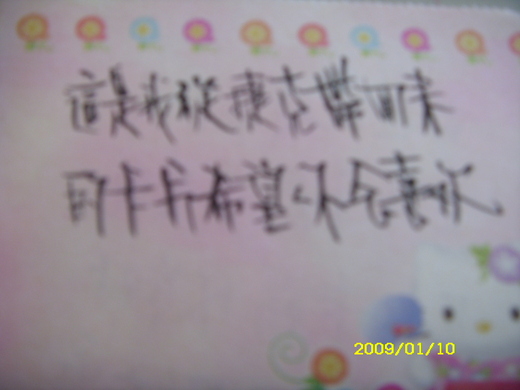 這是我從捷克帶回来
的卡片希望你会喜欢.
2009/01/10